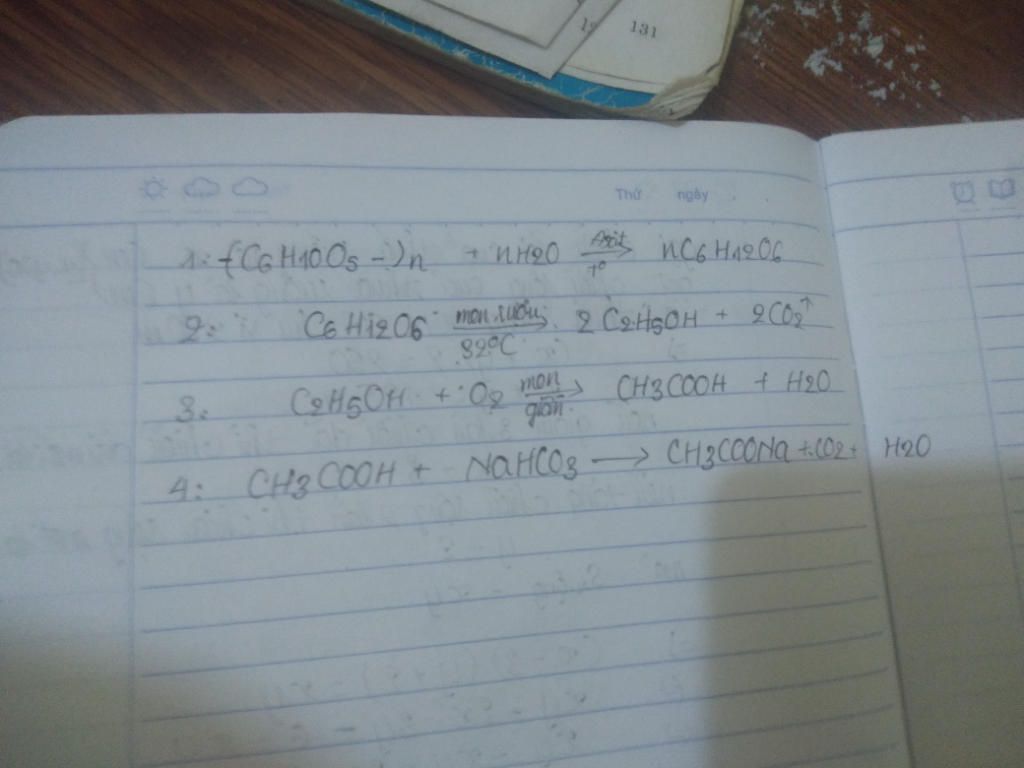 131
Thứ ngày
1: (-C6H10O5-)n + nH2O axit t° nC6H12O6
2: C6H12O6 men rượu 32°C 2C2H5OH + 2CO2↑
3: C2H5OH + O2 men giấm CH3COOH + H2O
4: CH3COOH + NaHCO3 → CH3COONa + CO2 + H2O